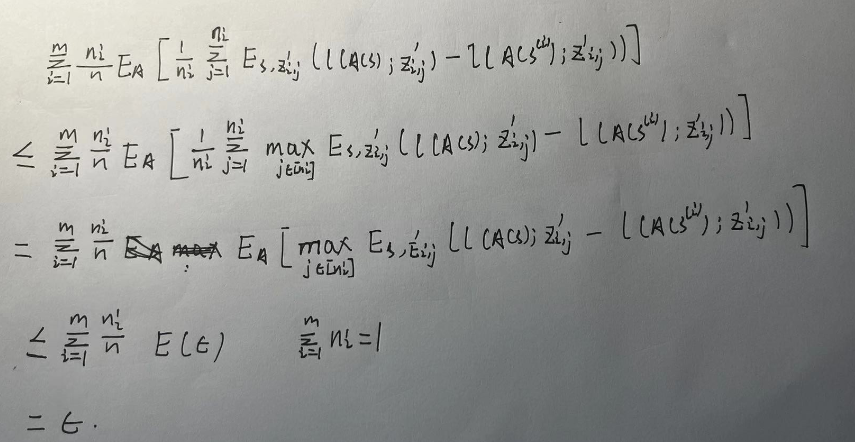 $\sum_{i=1}^{m} \frac{n_i}{n} E_A \left[ \frac{1}{n_i} \sum_{j=1}^{n_i} E_{S, z'_{i,j}} ( l(A(S); z'_{i,j}) - l(A(S^{(i)}); z'_{i,j})) \right]$
$\leq \sum_{i=1}^{m} \frac{n_i}{n} E_A \left[ \frac{1}{n_i} \sum_{j=1}^{n_i} \max_{j \in [n_i]} E_{S, z'_{i,j}} ( l(A(S); z'_{i,j}) - l(A(S^{(i)}); z'_{i,j})) \right]$
$= \sum_{i=1}^{m} \frac{n_i}{n} E_A \left[ \max_{j \in [n_i]} E_{S, z'_{i,j}} ( l(A(S); z'_{i,j} - l(A(S^{(i)}); z'_{i,j})) \right]$
$\leq \sum_{i=1}^{m} \frac{n_i}{n} E(\epsilon) \quad \sum_{i=1}^{m} n_i = 1$
$= \epsilon.$